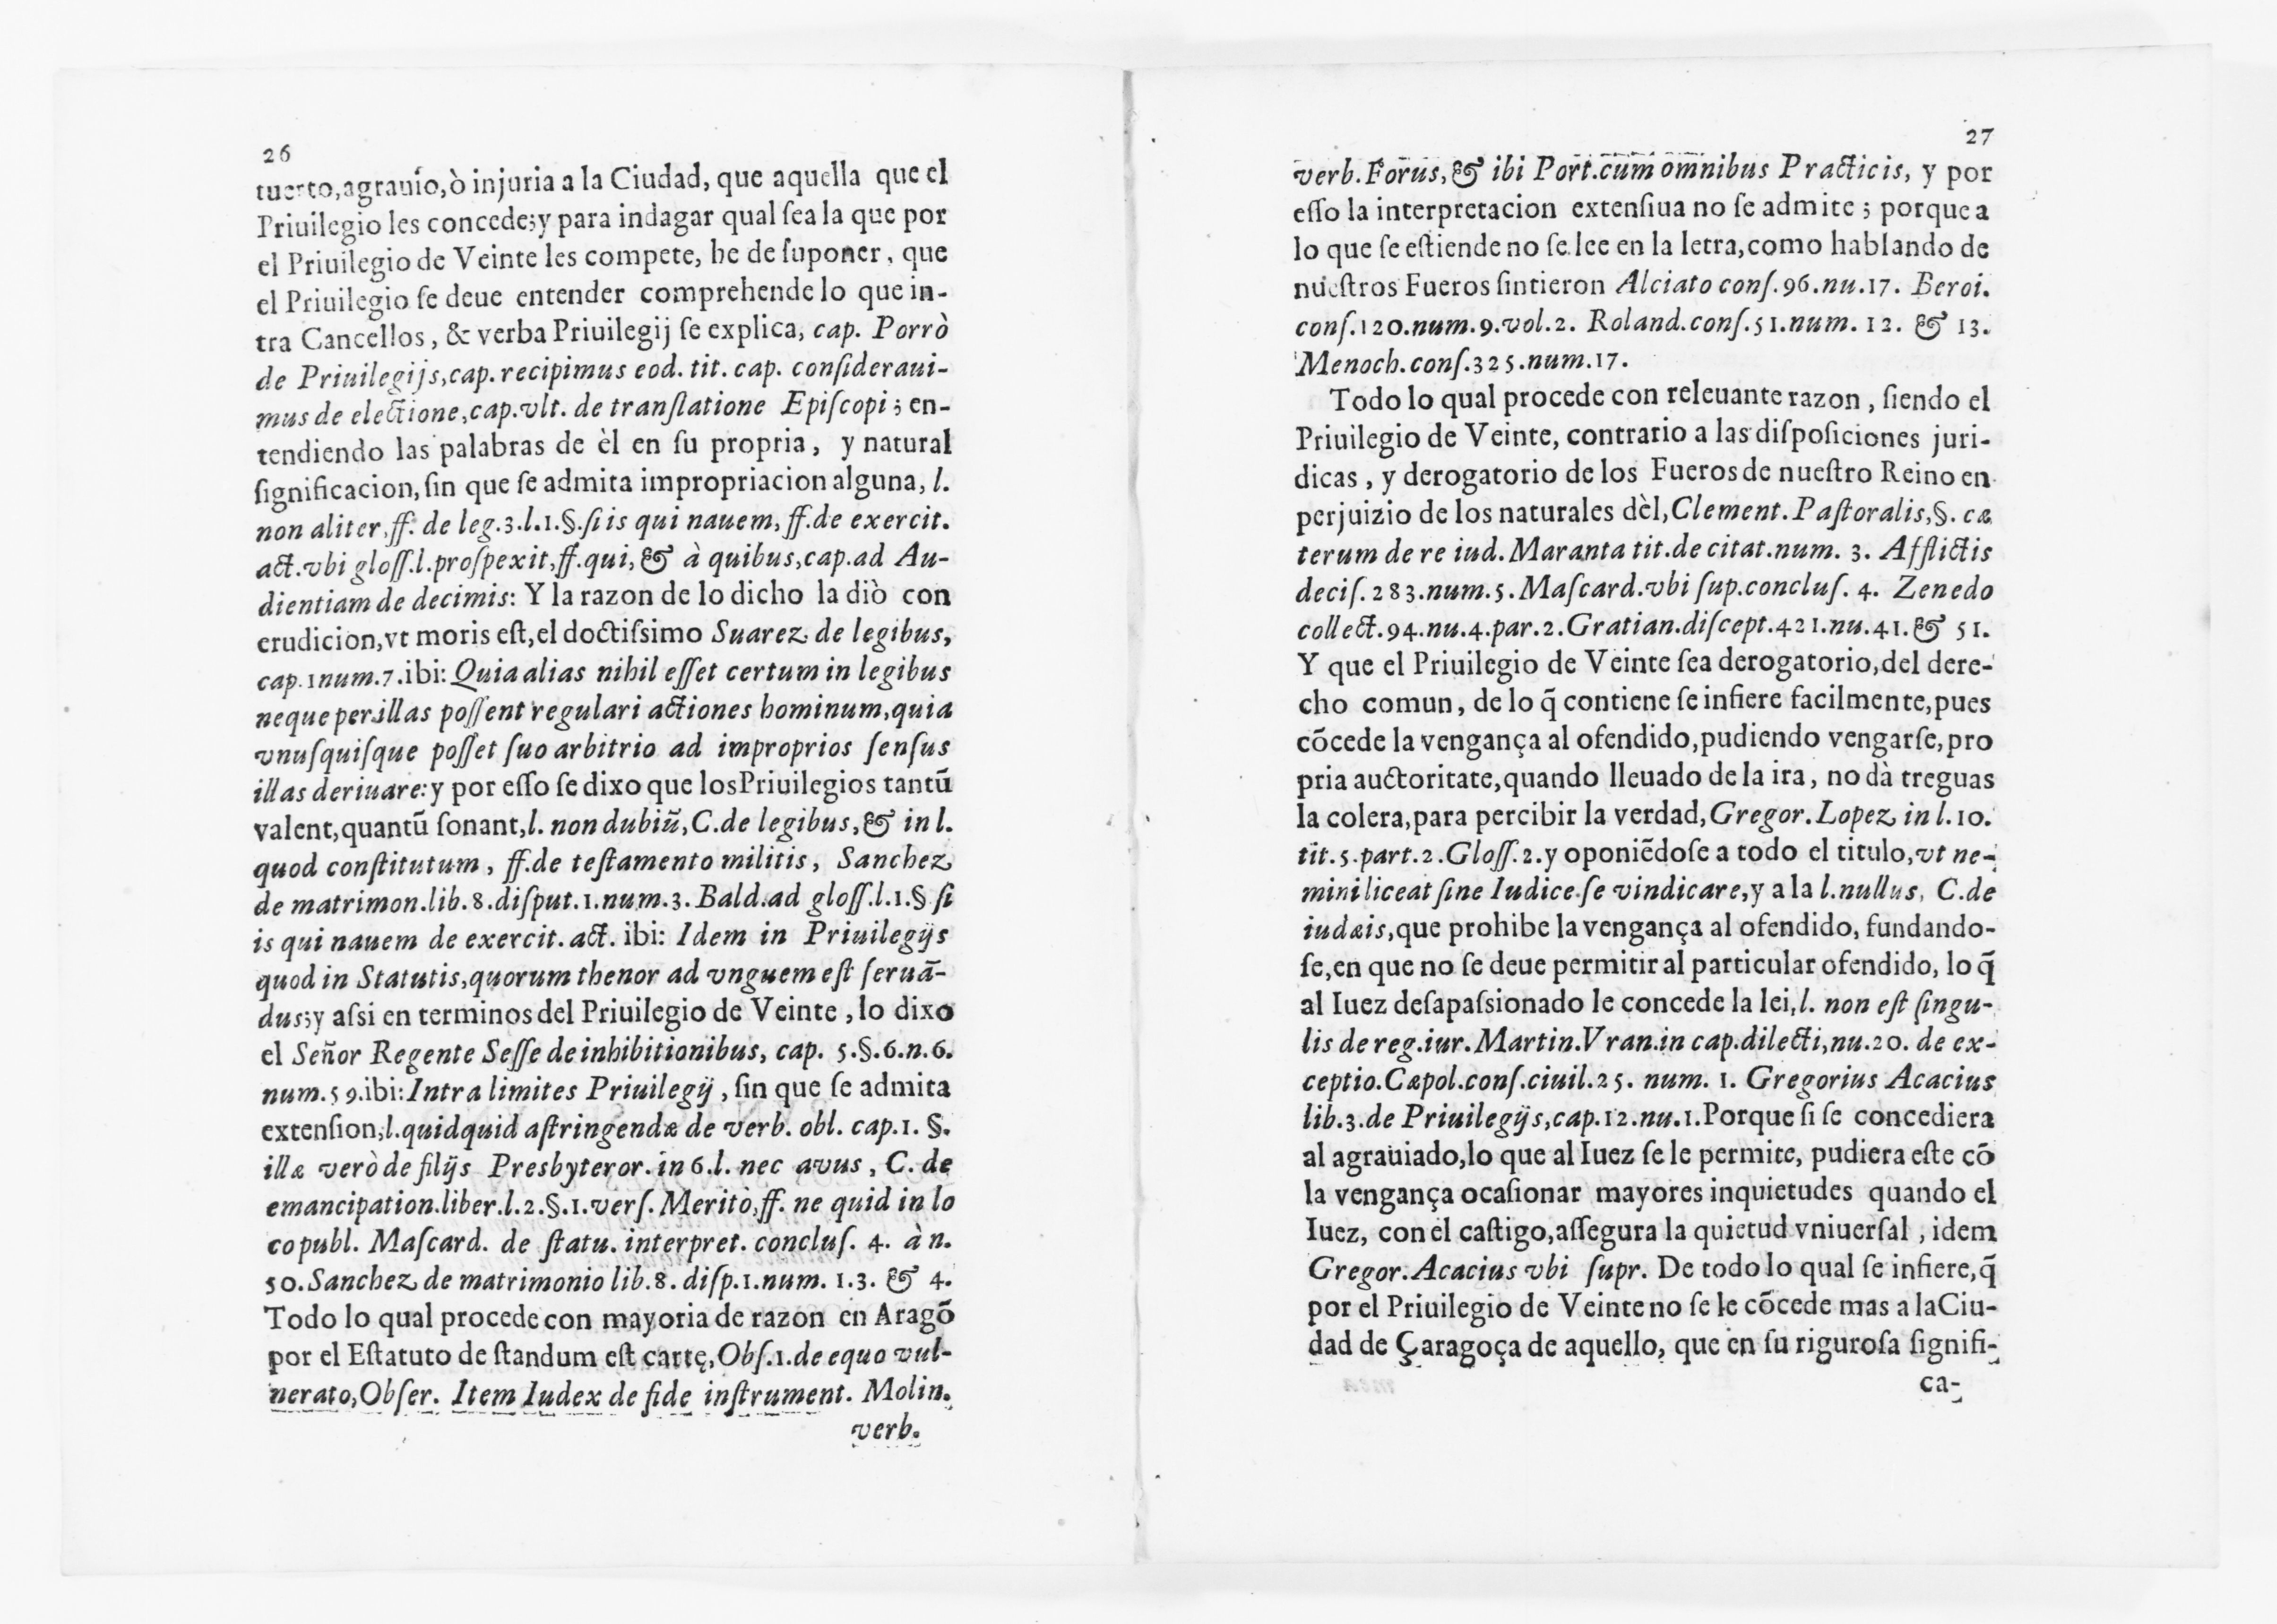 26
tuerto,agrauio,ò injuria a la Ciudad, que aquella que el
Priuilegio les concede;y para indagar qual ſea la que por
el Priuilegio de Veinte les compete, he de ſuponer, que
el Priuilegio ſe deue entender comprehende lo que in-
tra Cancellos, & verba Priuilegij ſe explica, cap. Porrò
de Priuilegijs,cap.recipimus eod. tit. cap. conſideraui-
mus de electione,cap.vlt. de tranſlatione Epiſcopi; en-
tendiendo las palabras de èl en ſu propria, y natural
ſignificacion, ſin que ſe admita impropriacion alguna, l.
non aliter,ff. de leg.3.l.1.§.ſi is qui nauem, ff.de exercit.
act.vbi gloſſ.l.proſpexit,ff.qui,& à quibus,cap.ad Au-
dientiam de decimis: Y la razon de lo dicho la diò con
erudicion,vt moris eſt,el doctiſsimo Suarez de legibus,
cap.1num.7.ibi: Quia alias nihil eſſet certum in legibus
neque per illas poſſent regulari actiones hominum,quia
vnuſquiſque poſſet ſuo arbitrio ad improprios ſenſus
illas deriuare: y por eſſo ſe dixo que los Priuilegios tantũ
valent,quantũ ſonant,l. non dubiũ,C.de legibus,& in l.
quod conſtitutum, ff.de teſtamento militis, Sanchez
de matrimon.lib.8.diſput.1.num.3.Bald.ad gloſſ.l.1.§ ſi
is qui nauem de exercit. act. ibi: Idem in Priuilegijs
quod in Statutis,quorum thenor ad vnguem eſt ſeruã-
dus;y aſsi en terminos del Priuilegio de Veinte, lo dixo
el Señor Regente Seſſe de inhibitionibus, cap. 5.§.6.n.6.
num.59.ibi: Intra limites Priuilegij, ſin que ſe admita
extenſion,l.quidquid aſtringendæ de verb. obl. cap.1. §.
illæ verò de filijs Presbyteror. in 6.l. nec avus, C. de
emancipation.liber.l.2.§.1.verſ.Meritò,ff. ne quid in lo
co publ. Maſcard. de ſtatu. interpret. concluſ. 4. à n.
50.Sanchez de matrimonio lib.8. diſp.1.num. 1.3. & 4.
Todo lo qual procede con mayoria de razon en Aragõ
por el Eſtatuto de ſtandum eſt cartę,Obſ.1.de equo vul-
nerato,Obſer. Item Iudex de fide inſtrument. Molin.
verb.
27
verb.Forus,& ibi Port.cum omnibus Practicis, y por
eſſo la interpretacion extenſiua no ſe admite; porque a
lo que ſe eſtiende no ſe lee en la letra,como hablando de
nueſtros Fueros ſintieron Alciato conſ.96.nu.17. Beroi.
conſ.120.num.9.vol.2. Roland.conſ.51.num. 12. & 13.
Menoch.conſ.325.num.17.
Todo lo qual procede con releuante razon, ſiendo el
Priuilegio de Veinte, contrario a las diſpoſiciones juri-
dicas, y derogatorio de los Fueros de nueſtro Reino en
perjuizio de los naturales dèl,Clement.Paſtoralis,§. cæ
terum de re iud.Maranta tit.de citat.num. 3. Afflictis
deciſ.283.num.5.Maſcard.vbi ſup.concluſ. 4. Zenedo
collect.94.nu.4.par.2.Gratian.diſcept.421.nu.41.& 51.
Y que el Priuilegio de Veinte ſea derogatorio,del dere-
cho comun, de lo q̃ contiene ſe infiere facilmente,pues
cõcede la vengança al ofendido,pudiendo vengarſe,pro
pria auctoritate,quando lleuado de la ira, no dà treguas
la colera,para percibir la verdad,Gregor.Lopez in l.10.
tit.5.part.2.Gloſſ.2.y oponiẽdoſe a todo el titulo,vt ne-
mini liceat ſine Iudice ſe vindicare,y a la l.nullus, C.de
iudæis,que prohibe la vengança al ofendido, fundando-
ſe,en que no ſe deue permitir al particular ofendido, lo q̃
al Iuez deſapaſsionado le concede la lei,l. non eſt ſingu-
lis de reg.iur.Martin.Vran.in cap.dilecti,nu.20. de ex-
ceptio.Cæpol.conſ.ciuil.25. num. 1. Gregorius Acacius
lib.3.de Priuilegijs,cap.12.nu.1.Porque ſi ſe concediera
al agrauiado,lo que al Iuez ſe le permite, pudiera eſte cõ
la vengança ocaſionar mayores inquietudes quando el
Iuez, con el caſtigo,aſſegura la quietud vniuerſal, idem
Gregor.Acacius vbi ſupr. De todo lo qual ſe infiere,q̃
por el Priuilegio de Veinte no ſe le cõcede mas a la Ciu-
dad de Çaragoça de aquello, que en ſu riguroſa ſignifi-
ca-